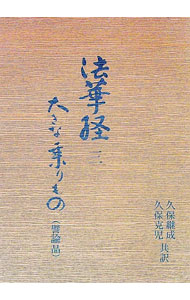 法華経 三
大きな乗りもの
(譬喩品)
久保継成
久保克児 共訳